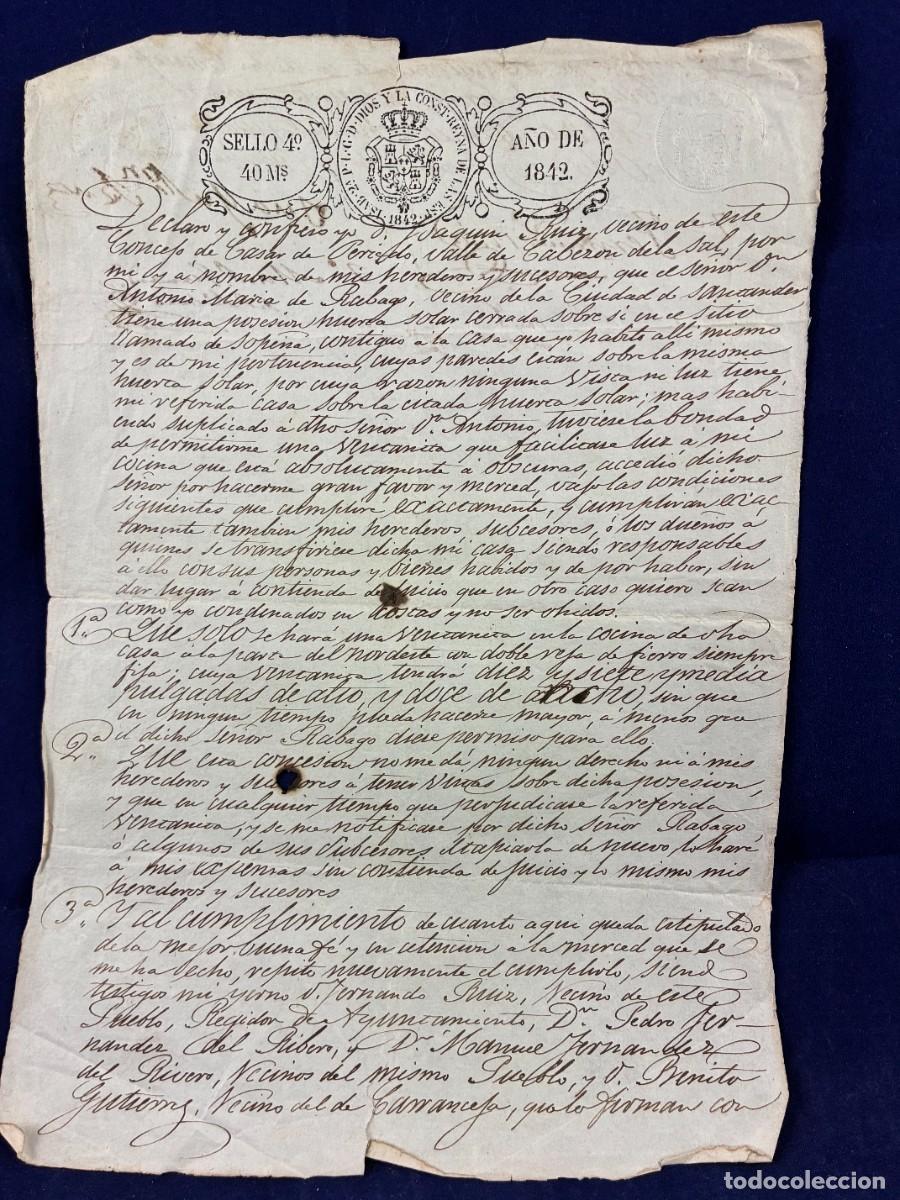 SELLO 4º
40 Mˢ
ISAB. 2ª P. L. G. D. DIOS Y LA CONST. REYNA DE LAS ESP.
1842
AÑO DE
1842.
Declaro y confieso yo D. Joaquin Ruiz, vecino de este
Concejo de Casar de Periedo, Valle de Cabezon de la Sal, por
mi y á nombre de mis herederos y sucesores, que el señor Dn
Antonio Maria de Rabago, vecino de la Ciudad de Santander
tiene una posesion huerta solar cerrada sobre si en el sitio
llamado de Sopeña, contiguo a la casa que yo habito alli mismo
y es de mi pertenencia, cuyas paredes están sobre la misma
huerta solar, por cuya razon ninguna vista ni luz tiene
mi referida casa sobre la citada huerta solar; mas habi-
endo suplicado á dho señor Dn Antonio, tuviese la bondad
de permitirme una ventanita que facilitase luz a mi
cocina que está absolutamente á obscuras, accedió dicho
señor por hacerme gran favor y merced, vajo las condiciones
siguientes que cumpliré exactamente, y cumpliran exac-
tamente tambien mis herederos subcesores, ó los dueños á
quienes se transfiriese dicha mi casa siendo responsables
á ello con sus personas y bienes habidos y de por haber, sin
dar lugar a contienda de juicio que en otro caso quiero sean
como yo condenados en costas y no ser ohidos.
1ª Que solo se hará una ventanita en la cocina de dha
casa á la parte del nordeste con doble reja de fierro siempre
fija; cuya ventanita tendrá diez y siete y media
pulgadas de alto, y doce de ancho, sin que
en ningun tiempo pueda hacerse mayor, a menos que
el dicho señor Rabago diese permiso para ello.
2ª Que esta concesion no me dá, ningun derecho ni á mis
herederos y sucesores á tener vistas sobre dicha posesion,
y que en cualquier tiempo que perjudicase la referida
ventanita, y se me notificase por dicho señor Rabago
ó algunos de sus subcesores el tapiarla de nuevo, lo haré
á mis expensas sin contienda de juicio y lo mismo mis
herederos y sucesores
3ª Y al cumplimiento de cuanto aqui queda estipulado
de la mejor buena fé y en atencion a la merced que se
me ha hecho, repito nuevamente el cumplirlo, siend
testigos mi yerno D. Fernando Ruiz, Vecino de este
Pueblo, Regidor de Ayuntamiento, Dn Pedro Fer-
nandez del Ribero, y Dn Manuel Fernandez
del Rivero, Vecinos del mismo Pueblo, y D. Benito
Gutierrez, Vecino del de Carranceja, que lo firman con
todocoleccion